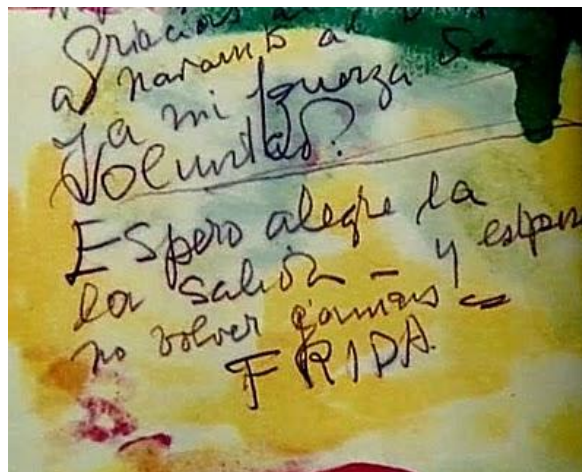 Gracias a
a Naranjo al
y a mi fuerza de
Voluntad.
Espero alegre la
la salida – y espero
no volver jamás
FRIDA.